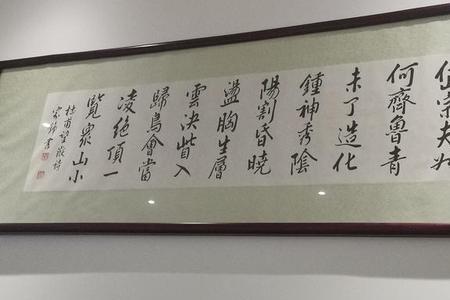 岱宗夫如
何齊魯青
未了造化
鍾神秀陰
陽割昏曉
盪胸生層
雲決眥入
歸鳥會當
凌絕頂一
覽眾山小
杜甫望嶽詩